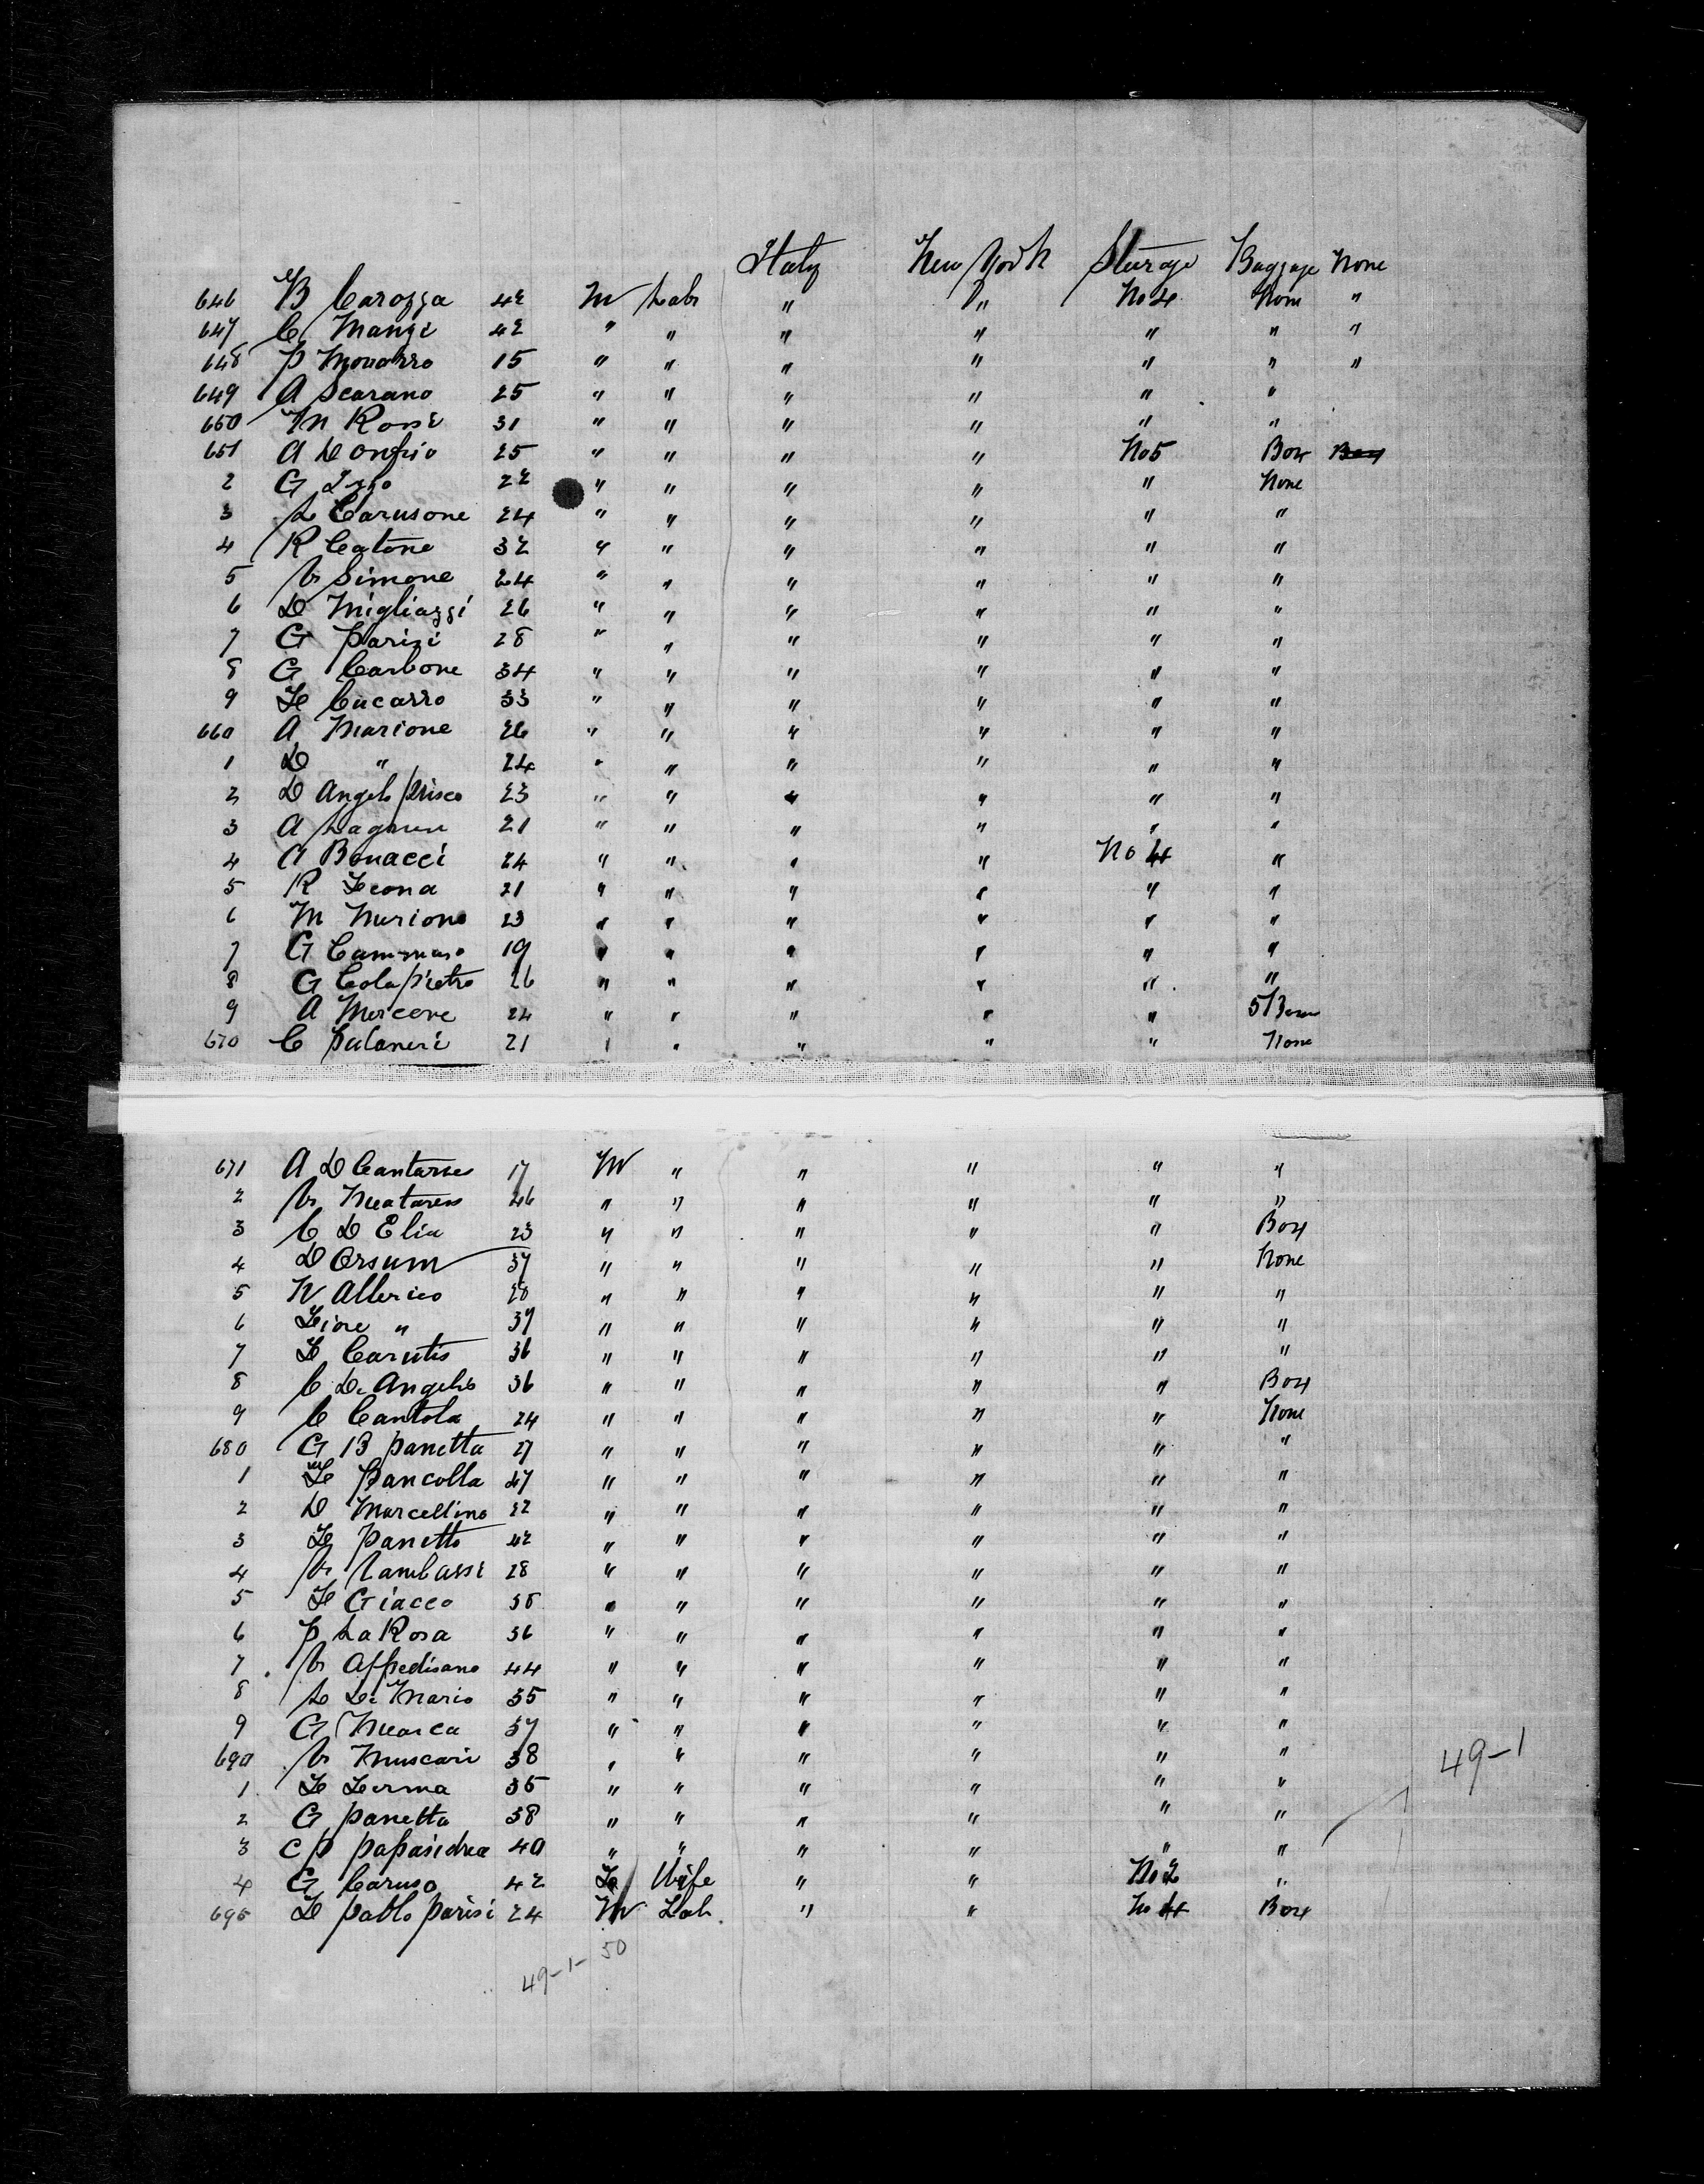 Italy New York Steerage Baggage None
646 B Carozza 42 M Labr " " No 4 None "
647 C Manzi 42 " " " " " " "
648 P Monarro 15 " " " " " " "
649 A Scarano 25 " " " " " "
650 M Rossi 31 " " " " " "
651 A D Onofrio 25 " " " " No 5 Box Box
2 G Izzo 22 " " " " " None
3 L Carusone 24 " " " " " "
4 R Catone 32 " " " " " "
5 V Simone 24 " " " " " "
6 D Migliazzi 26 " " " " " "
7 G Parisi 28 " " " " " "
8 G Carbone 34 " " " " " "
9 F Cucarro 33 " " " " " "
660 A Marione 26 " " " " " "
1 D " 24 " " " " " "
2 D Angelo Prisco 23 " " " " " "
3 A 21 " " " " " "
4 A Bonacci 24 " " " " No 4 "
5 R Leona 21 " " " " " "
6 M 23 " " " " " "
7 G Cammaso 19 " " " " " "
8 G Colapietro 26 " " " " " "
9 A Morcone 24 " " " " "
670 C Pulaneri 21 " " " " " None
671 A D 17 M " " " " "
2 V 46 " " " " " "
3 C D Elia 23 " " " " " Box
4 D Orsum 37 " " " " " None
5 N Allerico 20 " " " " " "
6 Fiore " 37 " " " " " "
7 F Carutis 36 " " " " " "
8 C De Angelis 36 " " " " " Box
9 C Cantola 24 " " " " " None
680 G B Panetta 27 " " " " " "
1 F Bancolla 47 " " " " " "
2 D Marcellino 22 " " " " " "
3 F Panetto 42 " " " " " "
4 V 28 " " " " " "
5 F Giacco 38 " " " " " "
6 P La Rosa 36 " " " " " "
7 V Affedisano 44 " " " " " "
8 L De Mario 35 " " " " " "
9 G Marca 37 " " " " " "
690 V Muscari 38 " " " " " "
49-1
1 F Ferma 35 " " " " " "
2 G Panetta 38 " " " " " "
3 C P Papasidrea 40 " " " " " "
4 G Caruso 42 F Wife " " No 2 "
695 F Pablo Parisi 24 M Lab " " No 4 Box
49-1-50